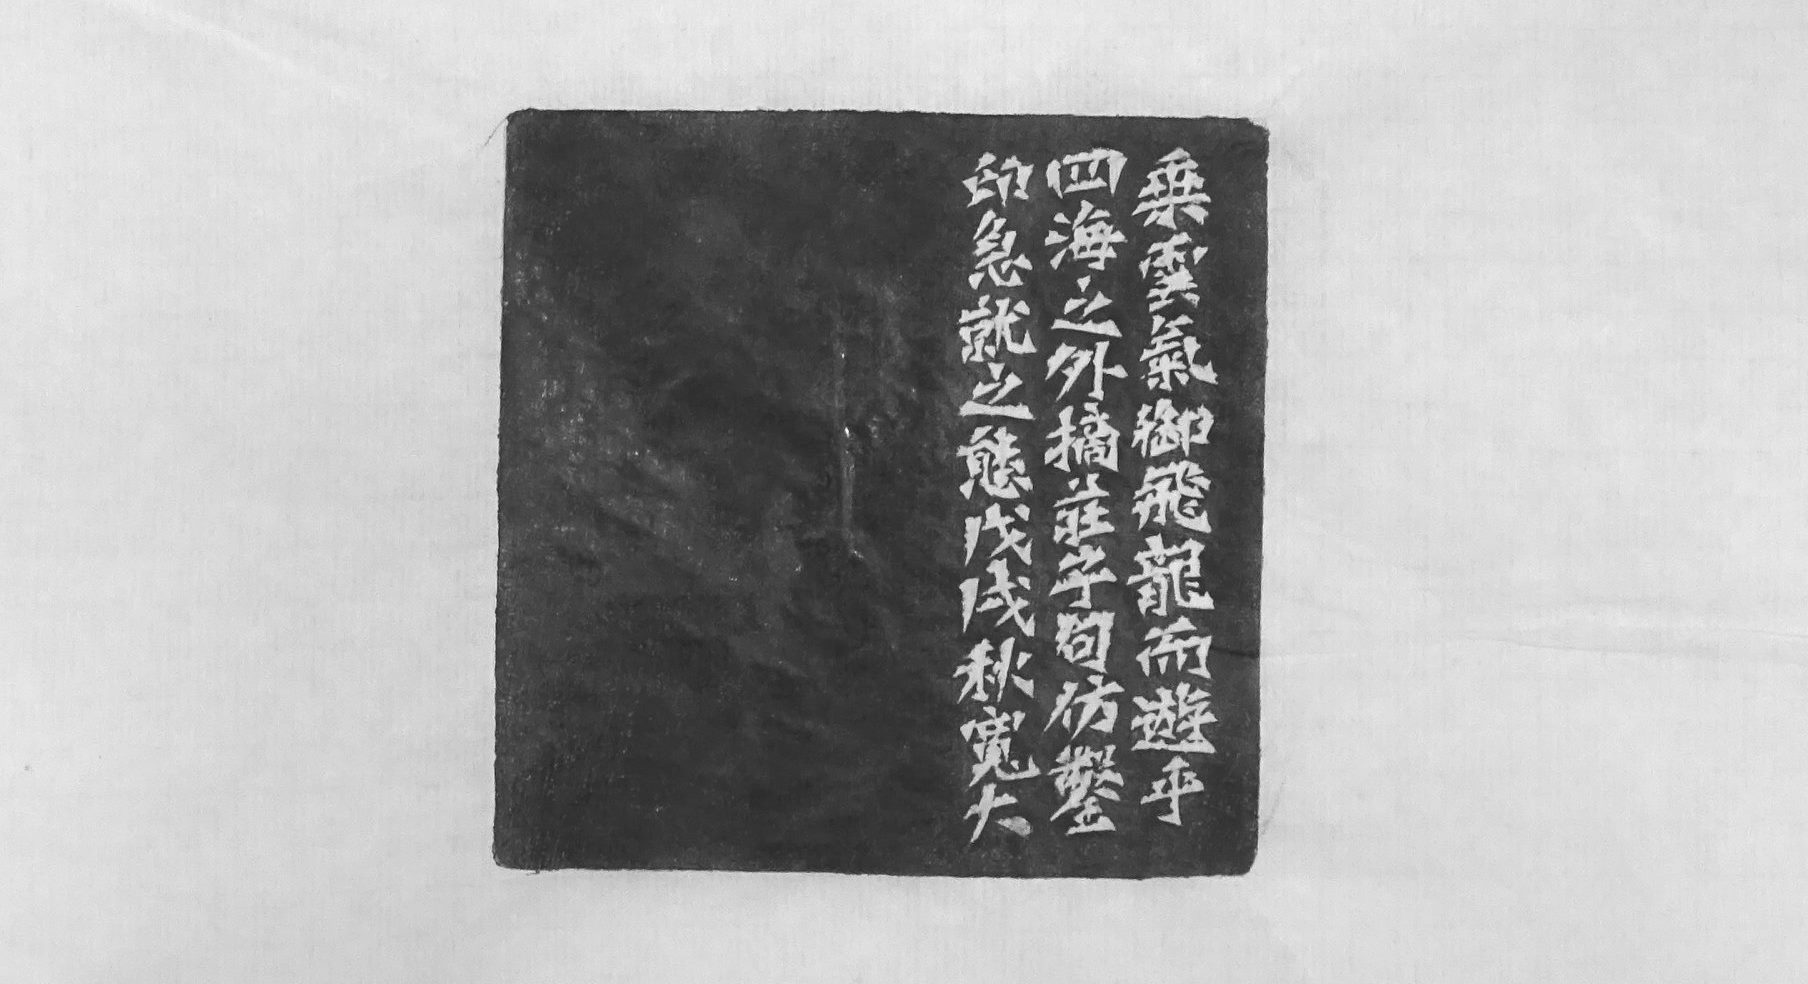 乘雲氣御飛龍而遊乎
四海之外摘莊子句仿鑿
印急就之態戊戌秋寬大